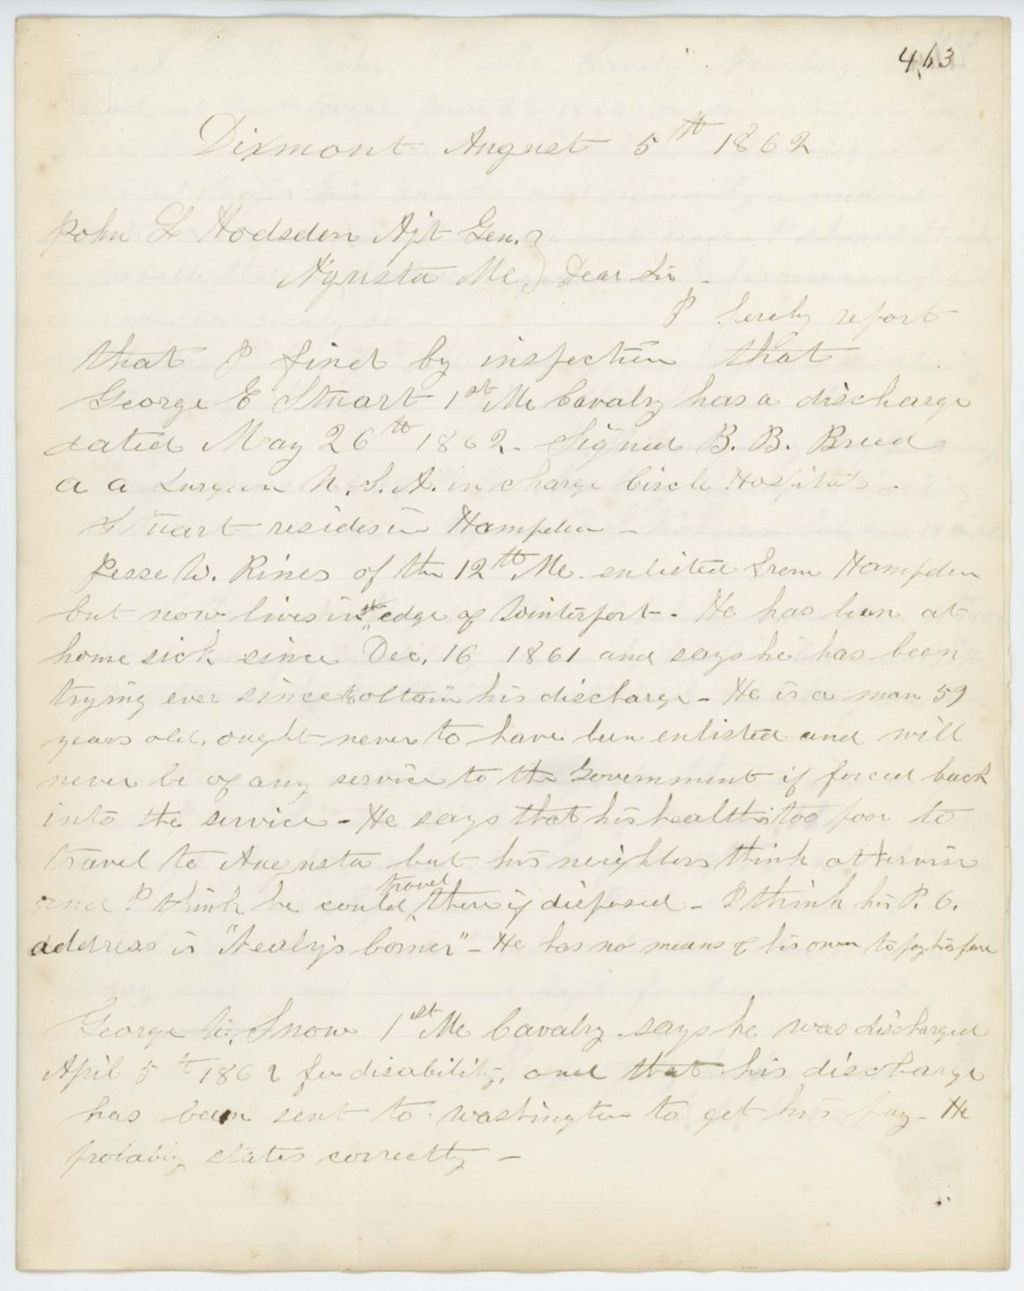 463
Dixmont August 5th 1862
John L Hodsdon Ajt Gen.
Agusta Me) Dear Sir.
I hereby report
that I find by inspection that
George E Stuart 1st Me Cavalry has a discharge
dated May 26th 1862. Signed B. B. Breed
a a Surgeon U. S. A. in charge Circle Hospital.
Stuart resides in Hampden -
Jesse W. Rines of the 12th Me. enlisted from Hampden
but now lives in the edge of Winterport. He has been at
home sick since Dec. 16 1861 and says he has been
trying ever since to obtain his discharge - He is a man 59
years old, ought never to have been enlisted and will
never be of any service to the Government if forced back
into the service - He says that his health is too poor to
travel to Augusta but his neighbors think otherwise
and I think he could travel there if disposed - I think his P. O.
address is " Corner" - He has no means of his own to pay his fare
George W. Snow 1st Me Cavalry says he was discharged
April 5th 1862 for disability, and that his discharge
has been sent to Washington to get his pay - He
probably states correctly -